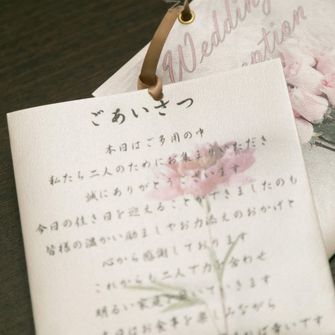 Wedding
Reception
ごあいさつ
本日はご多用の中
私たち二人のためにお集まりいただき
誠にありがとうございます
今日の佳き日を迎えることができましたのも
皆様の温かい励ましやお力添えのおかげと
心から感謝しております
これからも二人で力を合わせ
明るい家庭を築いていきます
本日はお食事を楽しみながら